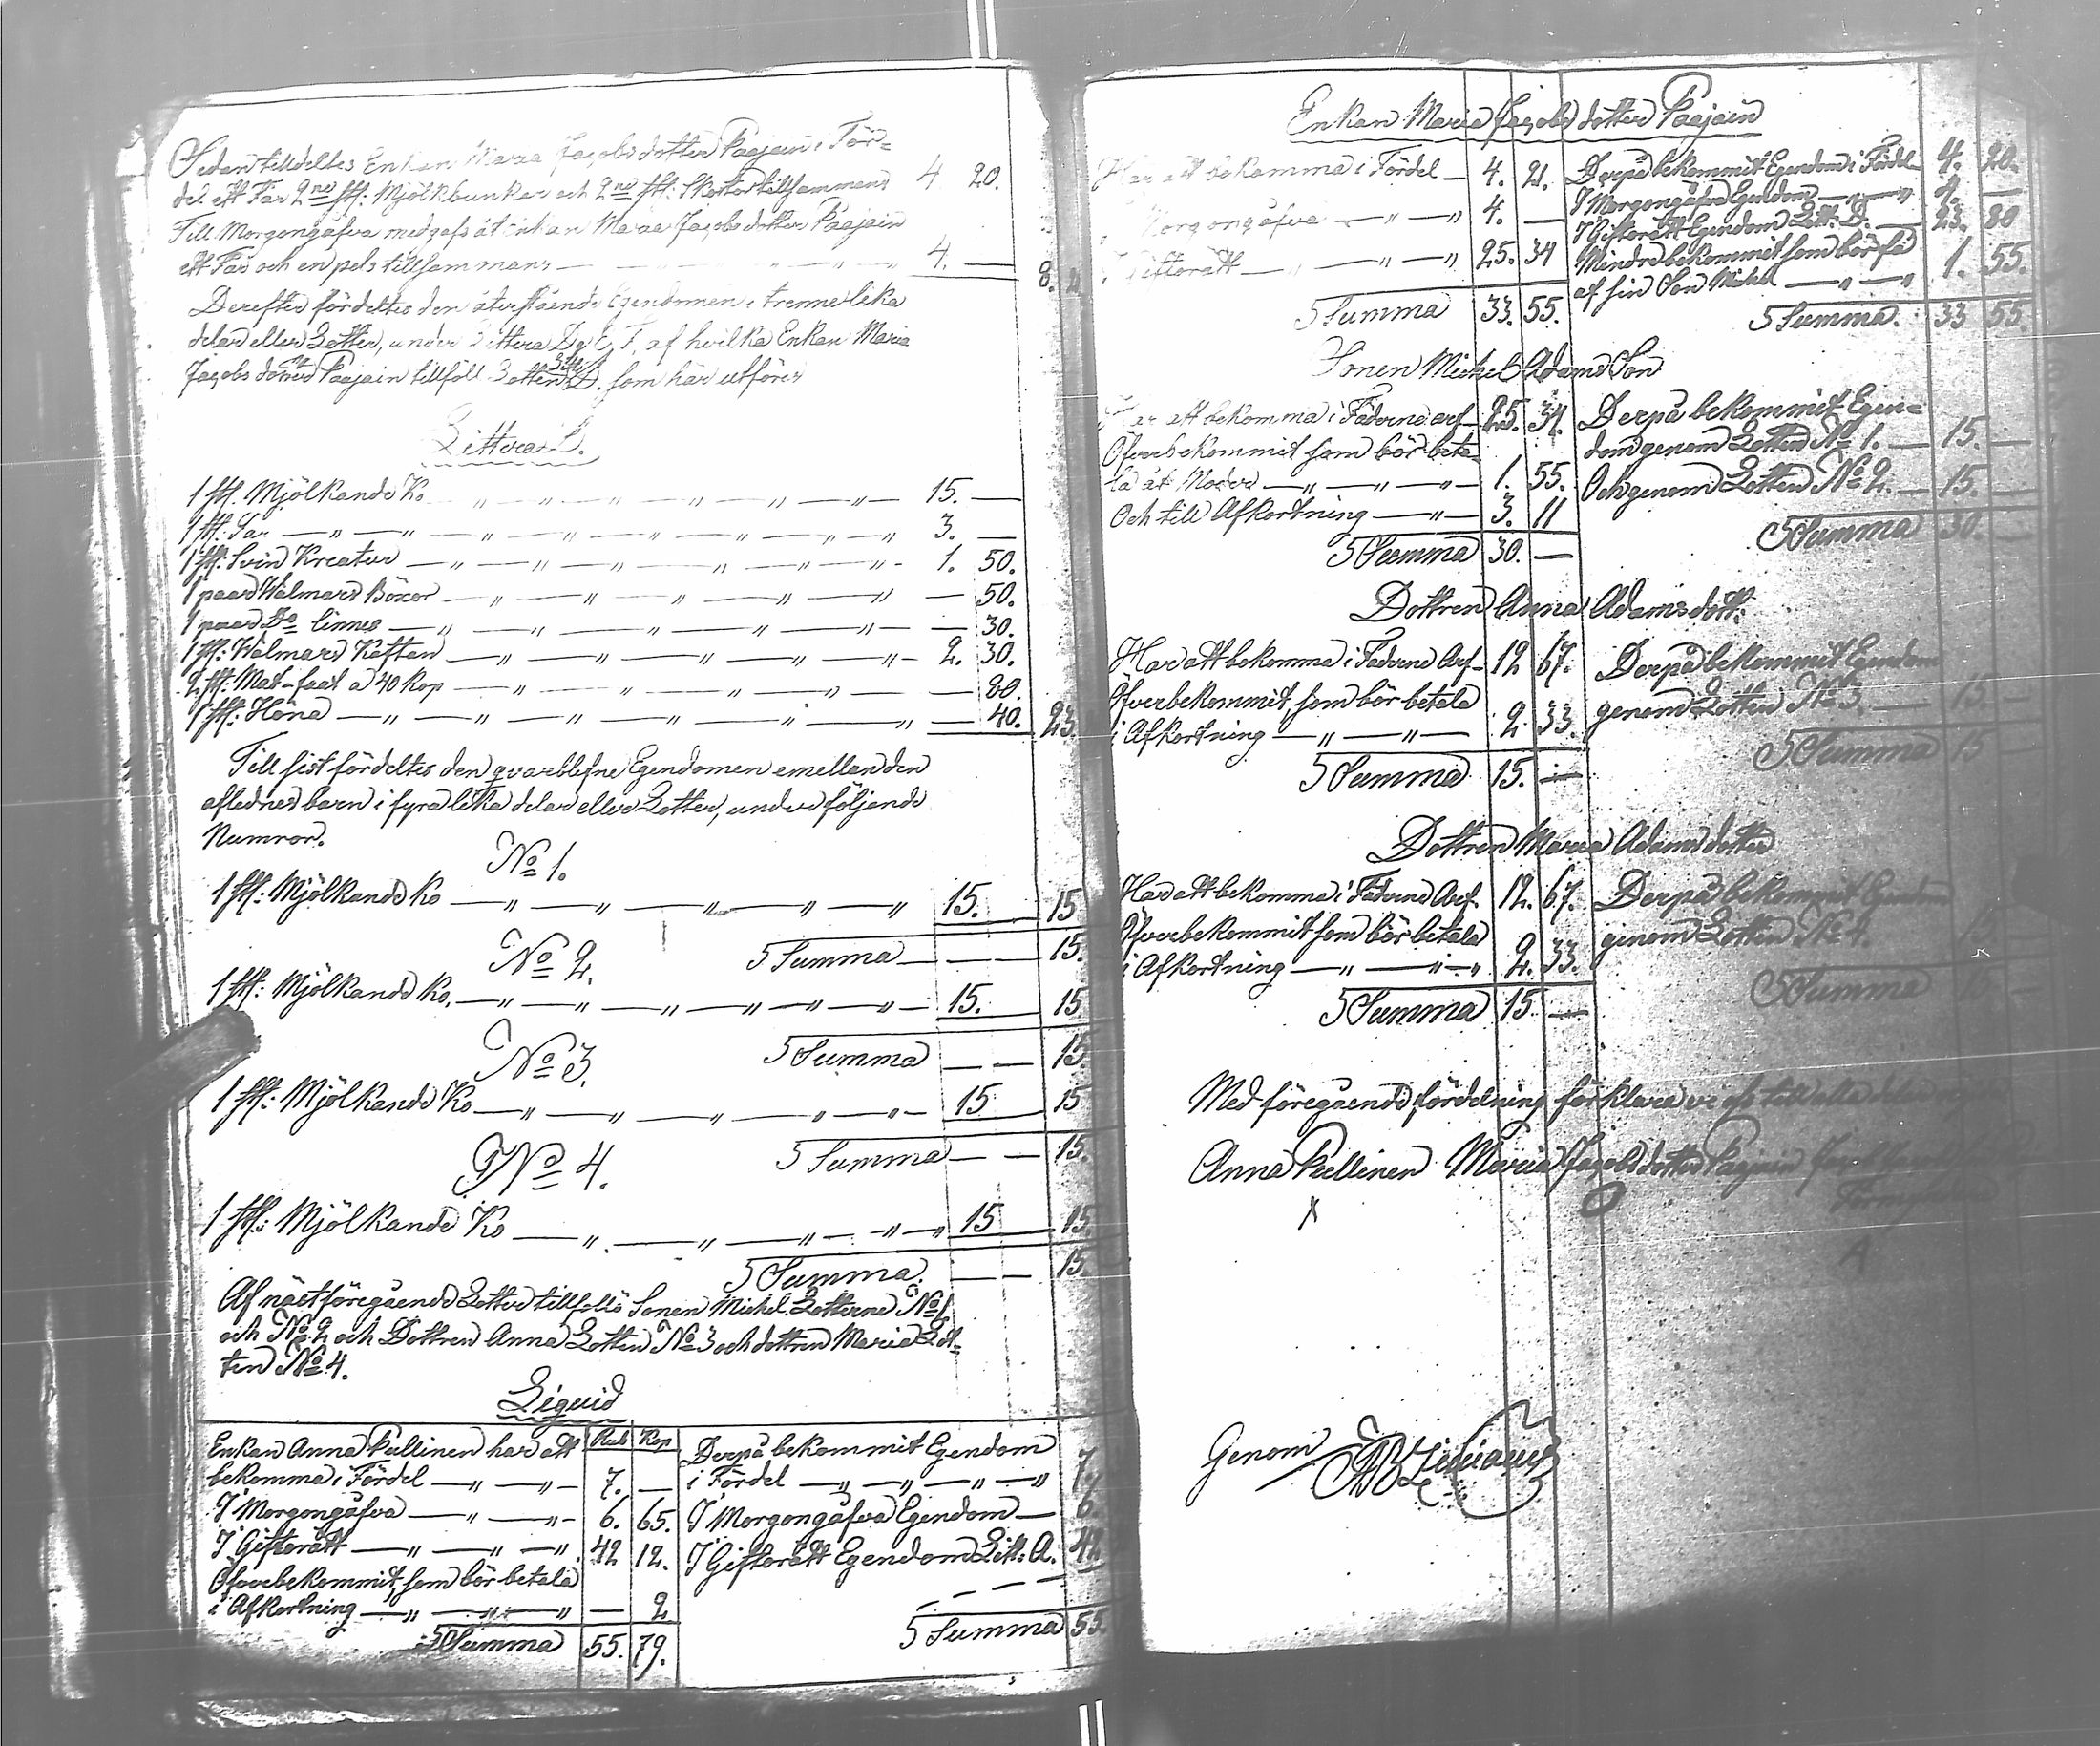 Sedan tilldeltes Enkan Maria Jacobsdotter Paajain i För=
del ett Får 2ne st: Mjölkbunkar och 2ne st: Skortor tillsammans 4 20.
Till Morgongåfva medgafs åt enkan Maria Jacobsdotter Paajain
ett Får och en pels tillsammans — „ — „ 4. — 8.
Derefter fördeltes den återstående Egendomen i trenne lika
delar eller Lotter, under Littera D, E, F, af hvilka Enkan Maria
Jacobsdotter Paajain tillföll Lotten Litt D. som här utföres
Littera D.
1 st. Mjölkande Ko — „ — „ — 15. —
1 st: Far — „ — „ — „ 3. —
1 st: Svin Kreatur — „ — „ — 1. 50.
1 paar Walmars Böxor — „ — „ — 50.
1 paar Do linnes — „ — „ — 30.
1 st: Walmars Kaftan — „ — „ — 2. 30.
2 st: Mat-faat a 40 Kop — „ — „ — 80.
1 st: Höna — „ — „ — 40. 23.
Till sist fördeltes den qvarblefne Egendomen emellan den
aflednes barn i fyra lika delar eller Lotter, under följande
Numror.
No 1.
1 st: Mjölkande Ko — „ — „ 15. — 15
Summa — — 15.
No 2.
1 st: Mjölkande Ko. — „ — „ — 15. — 15
Summa — — 15
No 3.
1 st: Mjölkande Ko — „ — „ — 15 — 15
Summa — — 15.
No 4.
1 st: Mjölkande Ko — „ — „ 15 — 15
Summa. — — 15.
Af nästföregående Lotter tillföllo Sonen Michel Lotterne No 1
och No 2 och Dottren Anna Lotten No 3 och dottren Maria Lot=
ten No 4.
Liquid
Enkan Anna Pullinen har att Rub Kop
bekomma i Fördel — „ — „ — 7. —
I Morgongåfva — „ — „ — 6. 65.
I Giftorätt — „ — „ — „ 42 12.
Öfverbekommit, som bör betala
i Afkortning — „ — „ — „ — 2
Summa 55. 79.
Derpå bekommit Egendom
i Fördel — „ — „ — „ — „ 7
I Morgongåfva Egendom — 6.
I Giftorätt Egendom Litt: A. 42
Summa 55.
Enkan Maria Jacobsdotter Paajain
Har att bekomma i Fördel — 4. 21.
Morgongåfva — „ — „ 4. —
Giftorätt — „ — „ — „ 25. 34
Summa 33. 55.
Derpå bekommit Egendom i Fördel 4. 20.
I Morgongåfva Egendom — „ — „ 4. —
I Giftorätt Egendom Litt. D. — 23. 80
Mindre bekommit som bör få
af sin Son Michel — „ — „ 1. 55.
Summa. 33 55.
Sonen Michel Adams Son
Har att bekomma i Fäderne arf — 25. 34.
Öfverbekommit som bör beta=
la åt Moder — „ — „ — „ — 1. 55.
Och till Afkortning — „ — 3. 11
Summa 30. —
Derpå bekommit Egen=
dom genom Lotten No 1. — 15. —
Och genom Lotten No 2. — 15. —
Summa 30. —
Dottren Anna Adamsdott:
Har att bekomma i Fäderne Arf — 12 67.
Öfverbekommit, som bör betala
i Afkortning — „ — „ — 2 33.
Summa 15. —
Derpå bekommit Egendom
genom Lotten No 3. — 15 —
Summa 15
Dottren Maria Adamsdotter
Har att bekomma i Fäderne Arf. 12. 67.
Öfverbekommit som bör betala
i Afkortning — „ — „ — „ 2. 33.
Summa 15. —
Derpå bekommit Egendom
genom Lotten No 4.
Summa —
Med föregående fördelning förklara vi oss
Anna Pullinen Maria Jacobsdotter Paajain
X O A
Genom